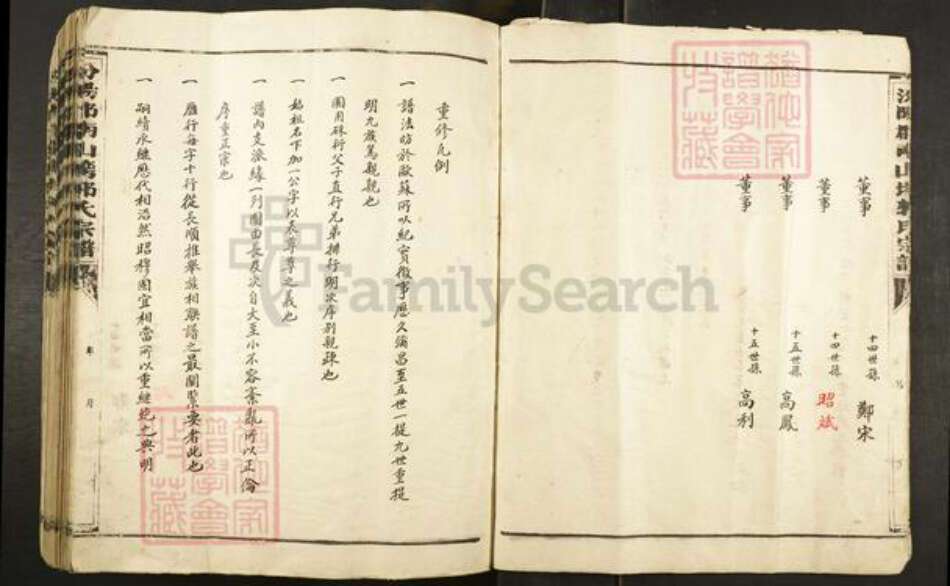 董事 十四世孫 鄭宋
董事 十四世孫 昭斌
董事 十五世孫 高鳳
董事 十五世孫 高利
重修凡例
一 譜法昉於歐蘇所以紀實徵事歷久彌昌至五世一提九世重提
明九族篤親親也
一 圖用硃衍父子直行兄弟排行明次序別親疎也
一 始祖名下加一公字以表尊尊之義也
一 譜內支派緣一列圖由長及次自大至小不容紊亂所以正倫
序重正宗也
一 雁行每字十行從長順推舉族相聯譜之最關繫要者此也
一 嗣續承繼歷代相沿然昭穆固宜相當所以重繼統之典明
年 月
FamilySearch
譜學會
藏
譜學會
藏